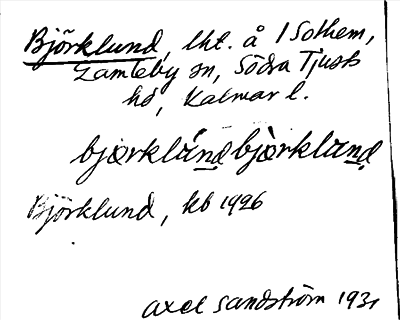 Björklund, lht. å 1 Solhem,
Gamleby sn, Södra Tjusts
hd, Kalmar l.
bjørklánd bjørkland
Björklund, kb 1926
Axel Sandström 1931